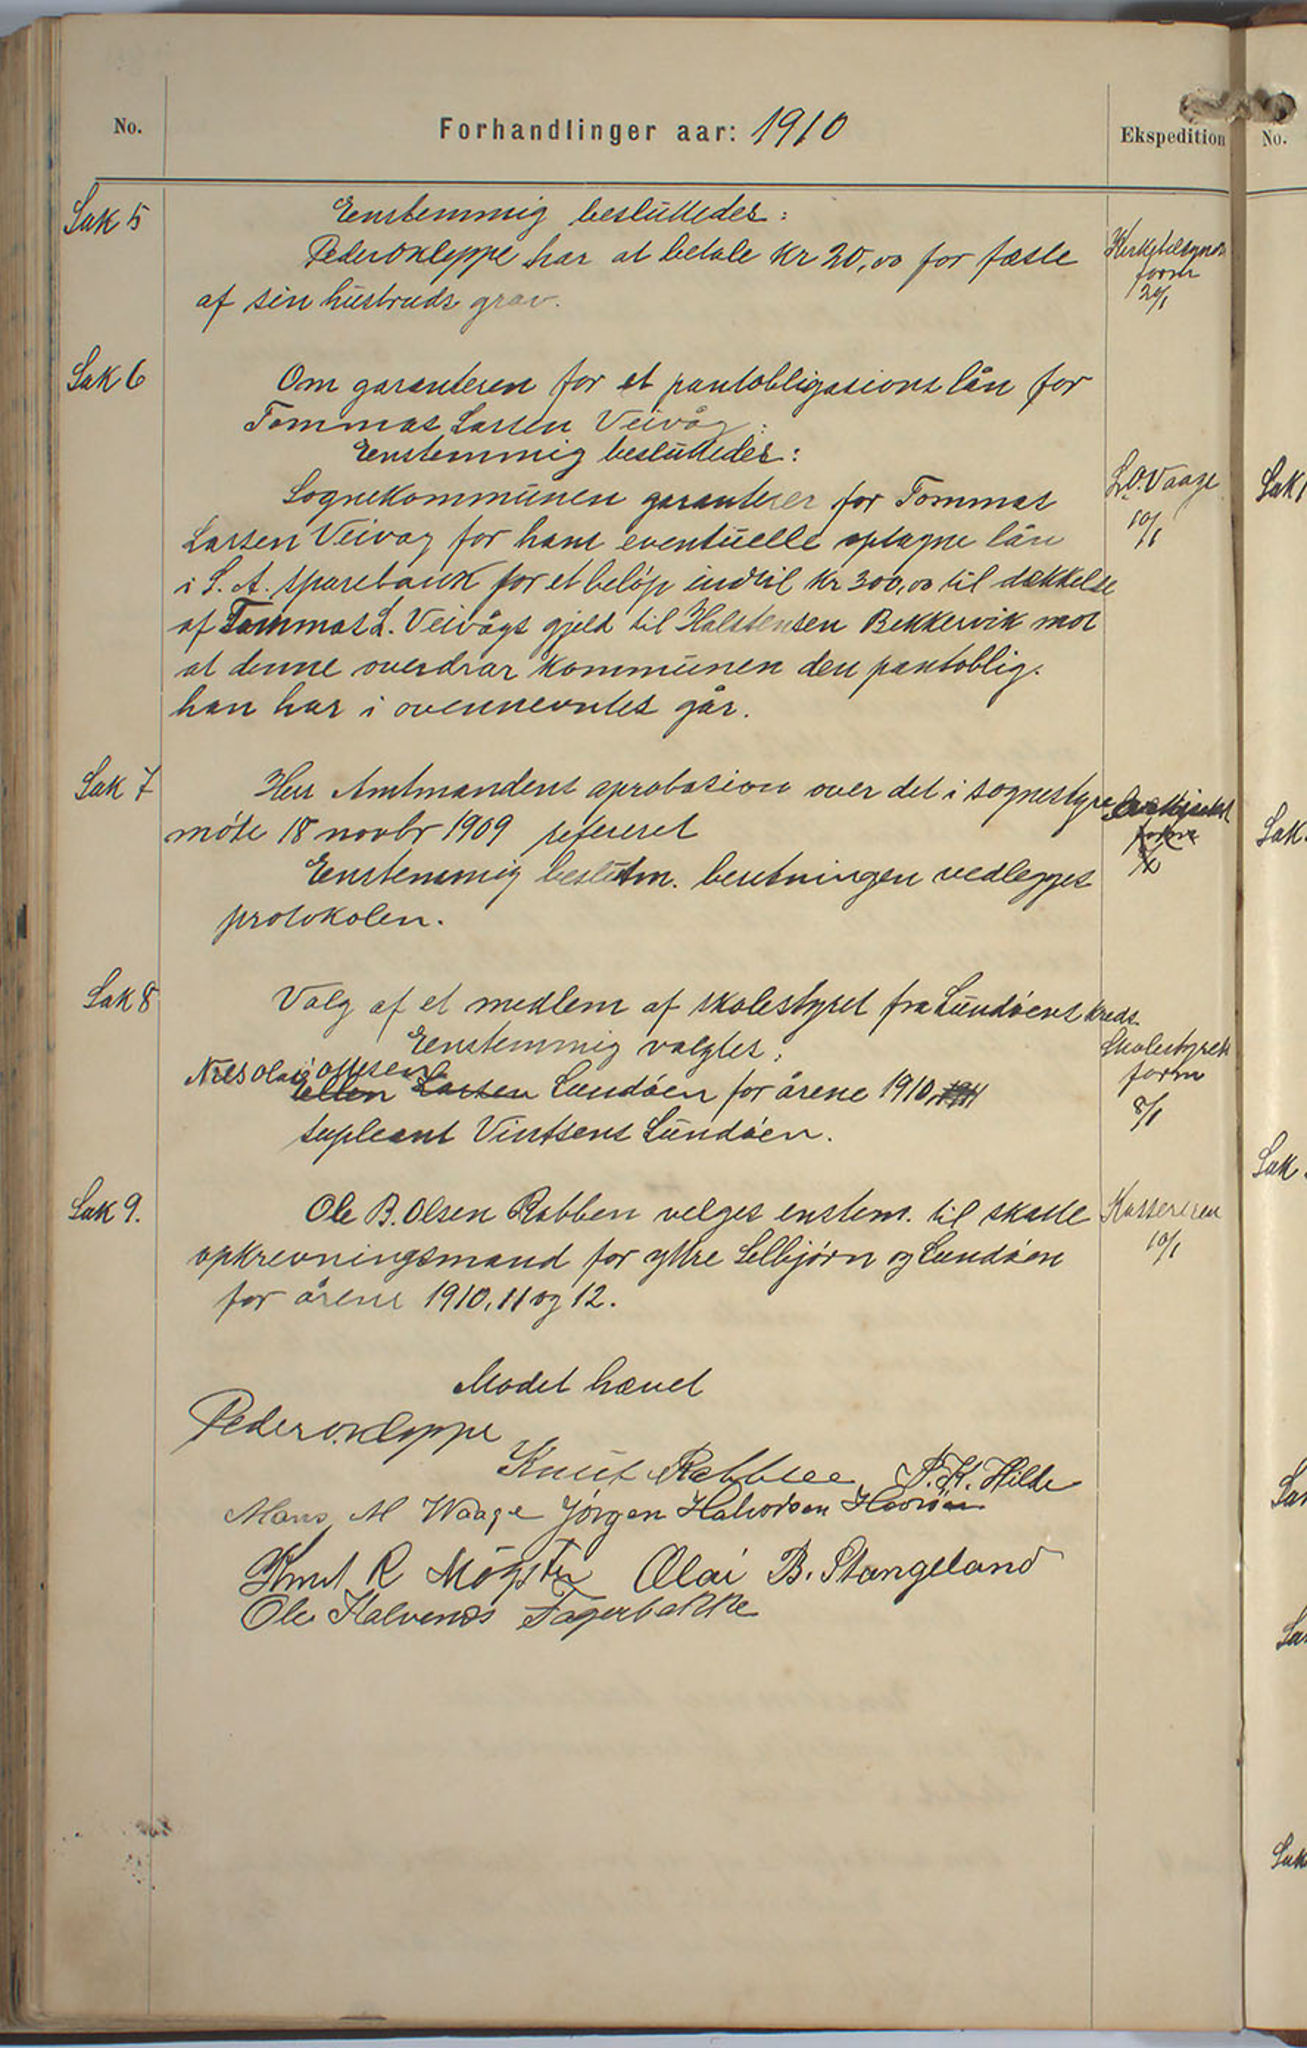 No.
Forhandlinger aar: 1910
Ekspedition
No.
Sak 5
Enstemmig besluttedes:
Peder O Kleppe har at betale kr 20,00 for fæste
af sin hustruds grav.
Kirketilsynets
form
20/1
Sak 6
Om garanteren for et pantobligasions lån for
Tommas Larsen Veivåg:
Enstemmig besluttedes:
Sognekommunen garanterer for Tommas
Larsen Veivag for hans eventuelle optagne lån
i S. A. sparebank for et beløp indtil kr 300,00 til dækkelse
af Tommas L. Veivågs gjeld til Halstensen Bekkervik mot
at denne overdrar kommunen den pantoblig.
han har i ovennevntes går.
L. O. Vaage
10/1
Sak 7
Herr Amtmandens aprobasion over det i sognestyre
møte 18 novbr 1909 refereret
Enstemmig beslutm. beretningen vedlegges
protokolen.
Sak 8
Valg af et medlem af skolestyret fra Lundøens kreds
Enstemmig valgtes:
Nils Olai Ottesen
Ellen Larsen Lundøen for årene 1910, 1911
supleant Vintsens Lundøen.
Skolestyrets
form
8/1
Sak 9.
Ole B. Olsen Rabben velges enstem. til skatte
opkrevningsmand for yttre Selbjørn og Lundøen
for årene 1910, 11 og 12.
Kassereren
10/1
Mødet hævet
Peder O. Kleppe
Knut Rabben P. K. Hilde
Mons M Waage Jørgen Halvorsen Hevrøen
Knut R Møgster Olai B. Stangeland
Ole Halvends Fagerbakke
Sak
Sak
Sak
Sak